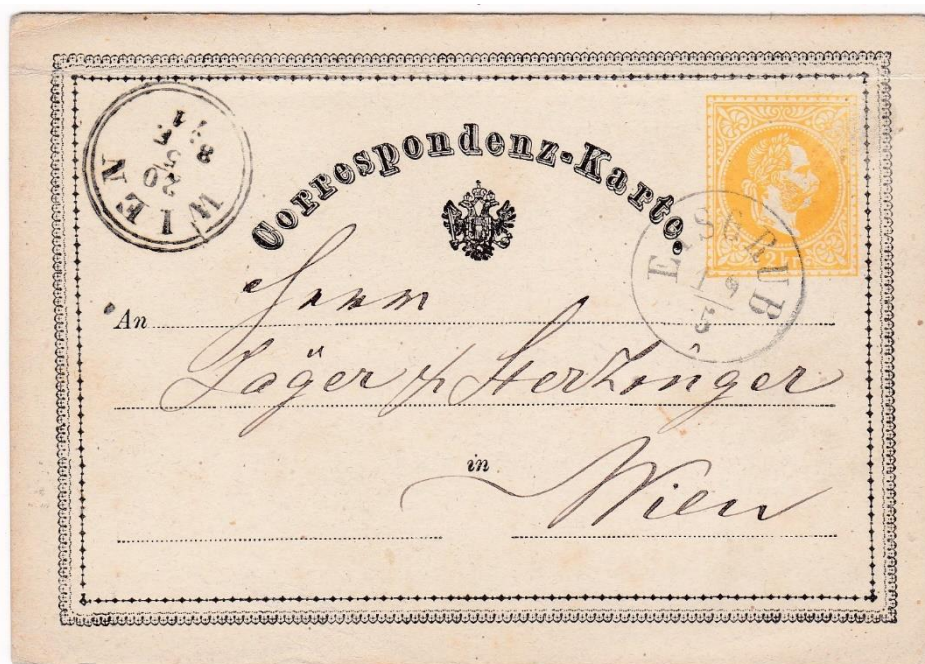 WIEN
20
5
8 71
Correspondenz-Karte.
2 Kr
EISGRUB
19
5
An Herrn
Jäger & Sterzinger
in Wien